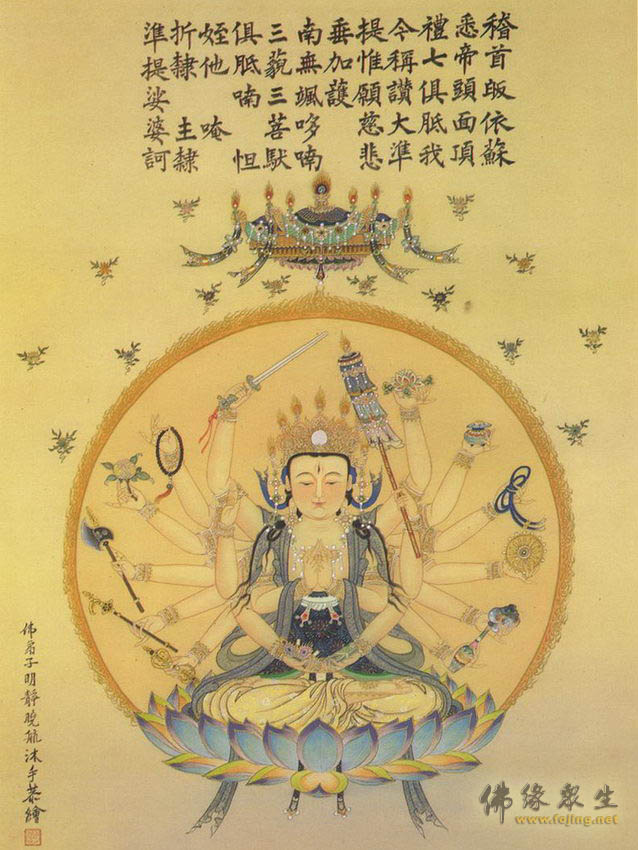 稽首皈依蘇
悉帝頭面頂
禮七俱胝我
今稱讚大準
提惟願慈悲
垂加護
南無颯哆喃
三藐三菩馱
俱胝喃 怛
姪他 唵
折隸 主隸
準提娑婆訶
佛弟子明靜晚毓沐手恭繪
佛緣衆生
www.fojing.net